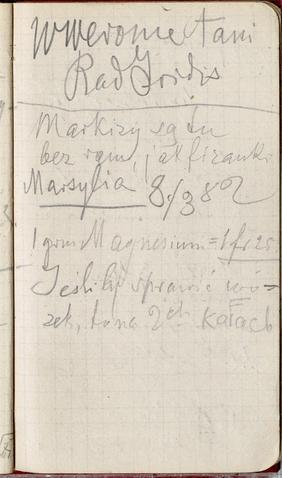 W Weronie tani
Rad Iridis
Markizy są tu
bez ram, jak firanki
Marsylia 8./3 82
1 grm Magnesium = 1 fr 25
Jeśliby sprawić wó=
zek, to na 2ch kołach